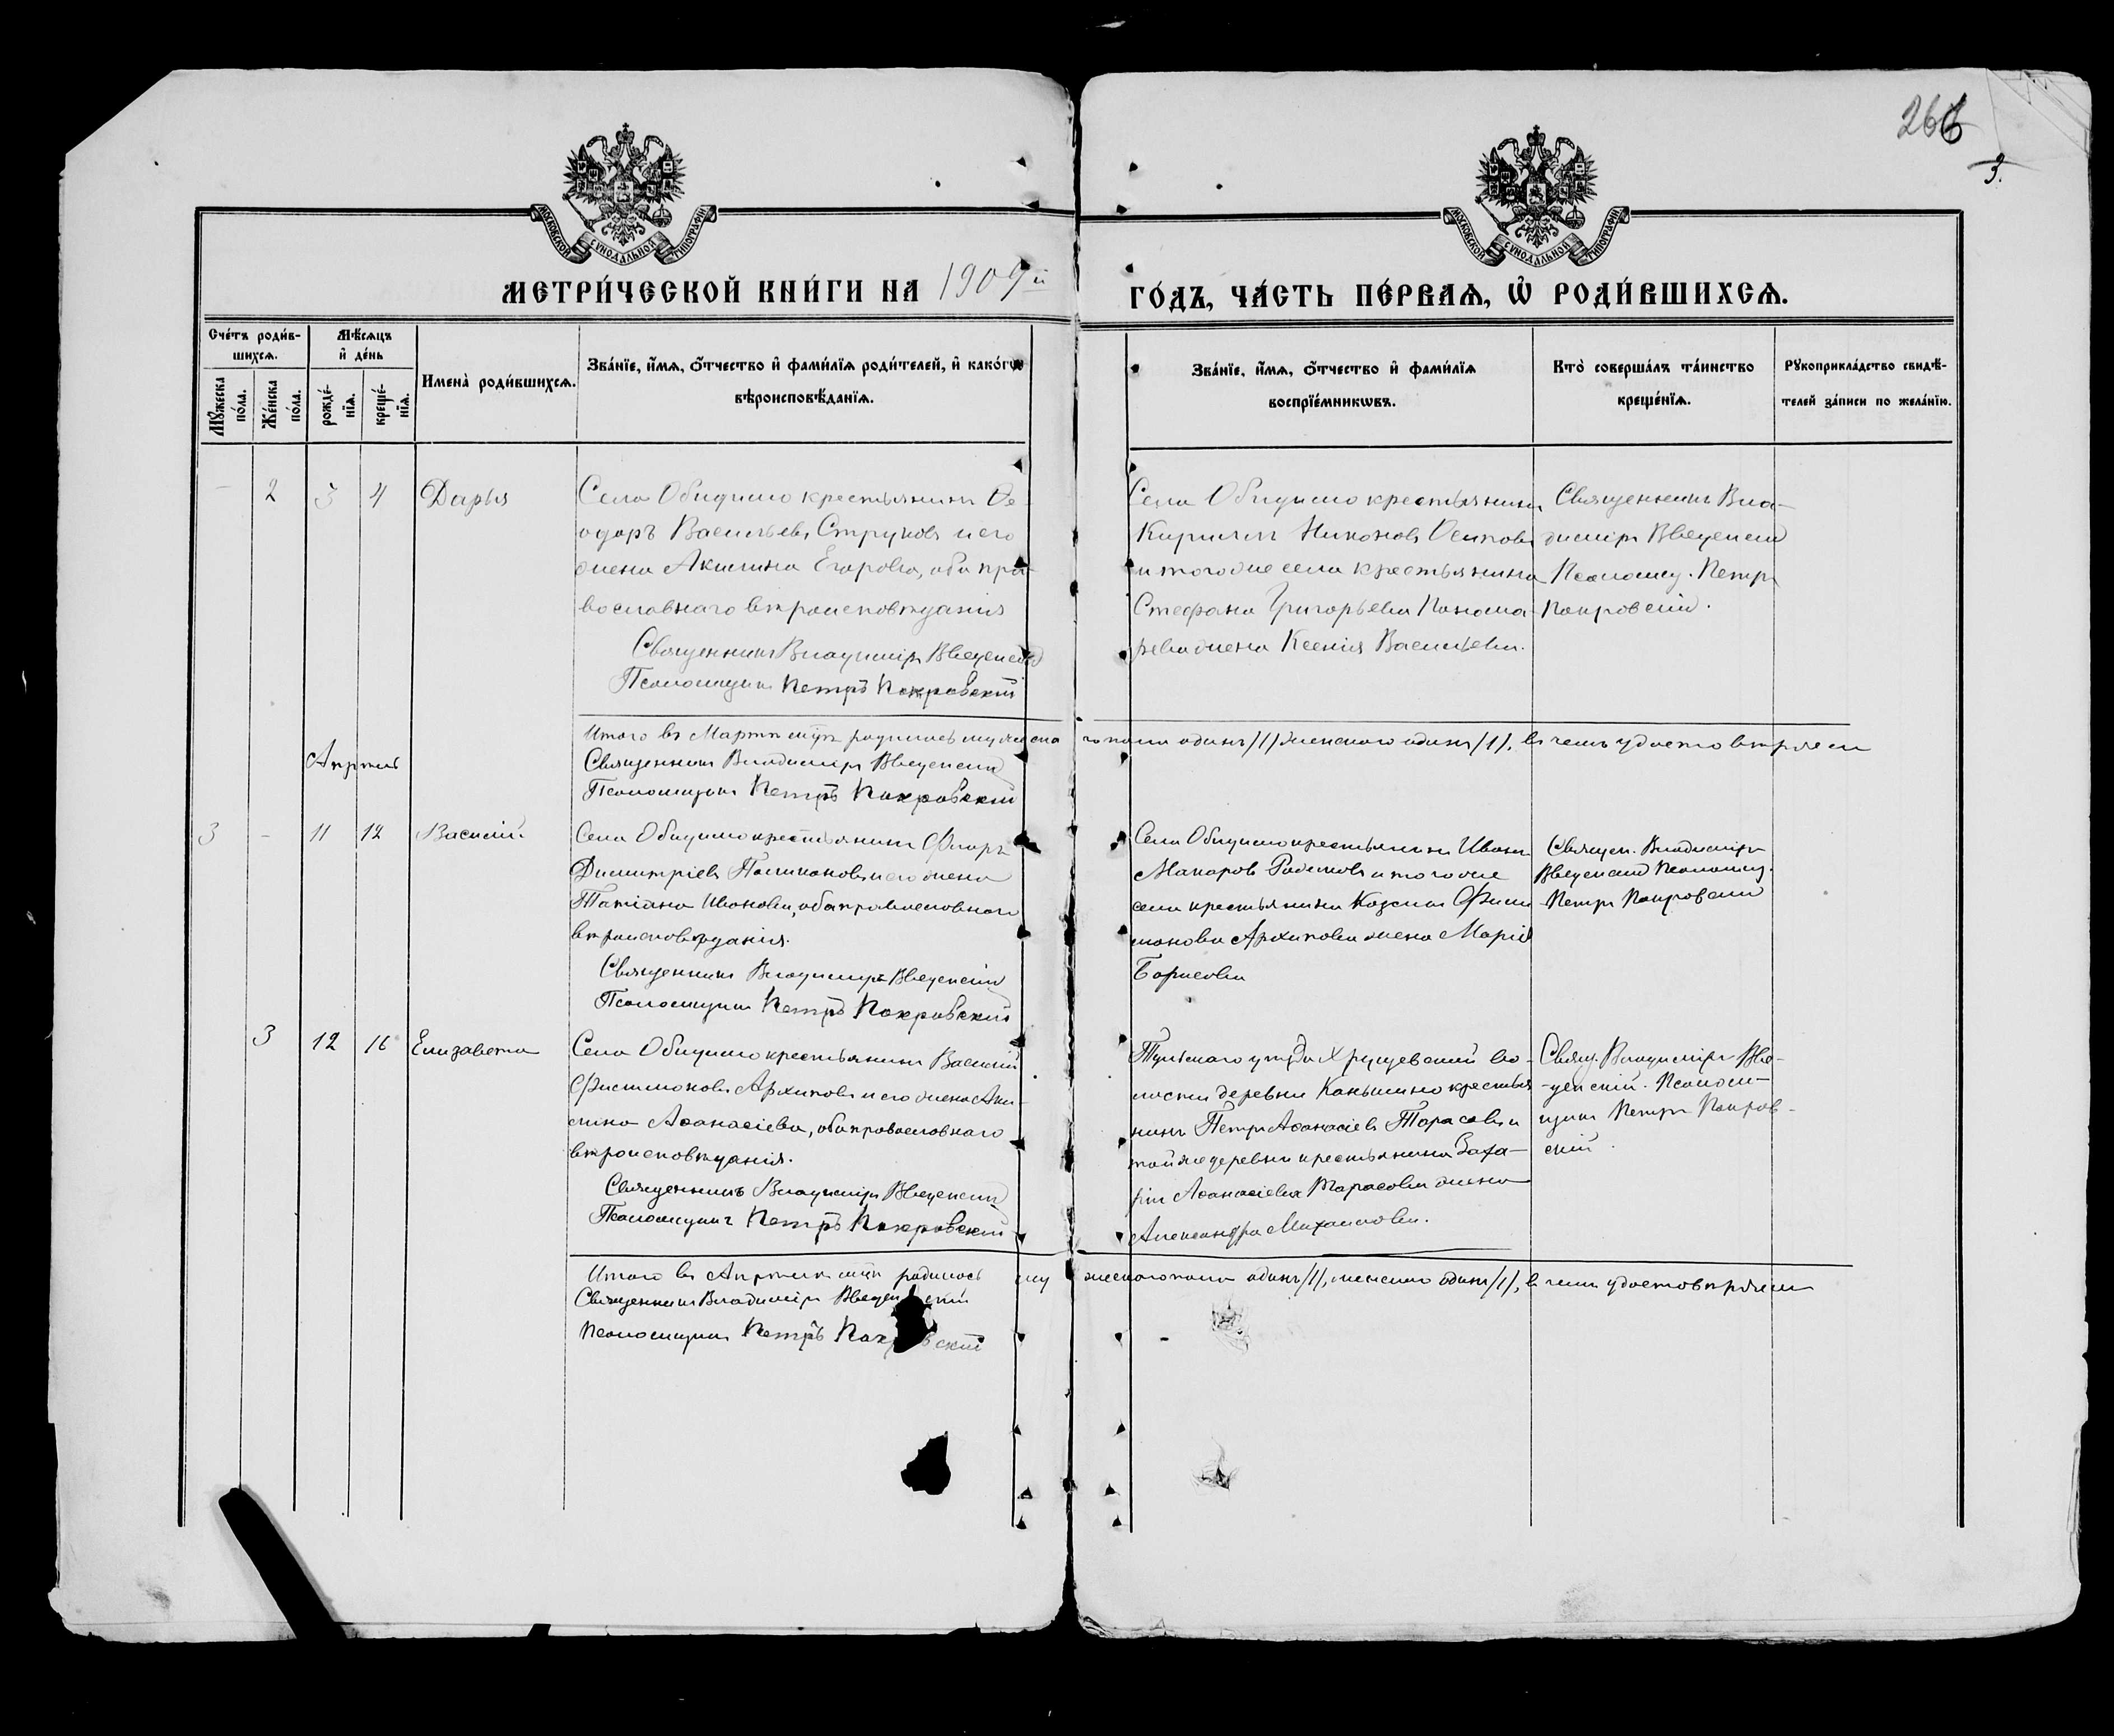 266
3.
МОСКОВСКОЙ СѴНОДАЛЬНОЙ ТИПОГРАФІИ
МОСКОВСКОЙ СѴНОДАЛЬНОЙ ТИПОГРАФІИ
МЕТРИ́ЧЕСКОЙ КНИ́ГИ НА 1909й
ГО́ДЪ, ЧА́СТЬ ПЕ́РВАѦ, Ѡ РОДИ́ВШИХСѦ.
Сче́тъ роди́в-
шихсѧ.
Мѣ́сѧцъ
и҆ де́нь
Мꙋ́жеска по́ла.
Же́нска по́ла.
рожде́-
нїѧ.
креще́-
нїѧ.
И҆мена̀ роди́вшихсѧ.
Зва́нїе, и҆́мѧ, ѻ҆́тчество и҆ фами́лїѧ роди́телей, и҆ како́гѡ
вѣроисповѣ́данїѧ.
Зва́нїе, и҆́мѧ, ѻ҆́тчество и҆ фами́лїѧ
воспрїе́мникѡвъ.
Кто̀ соверша́лъ та́инство
креще́нїѧ.
Рꙋкоприкла́дство свидѣ́-
телей за́писи по жела́нїю.
- 2 3 4 Дарья
Села Обидимо крестьянинъ Ѳе-
одоръ Васильевъ Струковъ и его
жена Акилина Егорова, оба пра-
вославнаго вѣроисповѣданія
Священникъ Владиміръ Введенскій
Псаломщикъ Петръ Покровскій
Села Обидимо крестьянинъ
Кириллъ Никоновъ Осиповъ
и того же села крестьянина
Стефана Григорьева Понома-
рева жена Ксенія Васильева.
Священникъ Вла-
диміръ Введенскій
Псаломщ. Петръ
Покровскій.
Итого въ Мартѣ мцѣ родилось мужеска-
го пола одинъ /1/ женскаго одинъ /1/, въ чемъ удостовѣряемъ
Священникъ Владиміръ Введенскій
Псаломщикъ Петръ Покровскій
Апрѣль
3 - 11 12 Василій.
Села Обидимо крестьянинъ Флоръ
Димитріевъ и его жена
Татіана Иванова, оба православнаго
вѣроисповѣданія.
Священникъ Владиміръ Введенскій
Псаломщикъ Петръ Покровскій
Села Обидимо крестьянинъ Иванъ
Макаровъ и того же
села крестьянина Козьмы Фили-
монова Архипова жена Марія
Борисова
Священ. Владиміръ
Введенскій Псаломщ.
Петръ Покровскій
3 12 16 Елизавета
Села Обидимо крестьянинъ Василій
Филимоновъ Архиповъ и его жена Аки-
лина Аѳанасіева, оба православнаго
вѣроисповѣданія.
Священникъ Владиміръ Введенскій
Псаломщикъ Петръ Покровскій
Тульскаго уѣзда Хрущевской во-
лости деревни Коньшино крестья-
нинъ Петръ Аѳанасіевъ Тарасовъ и
той же деревни крестьянина Заха-
рія Аѳанасіева Тарасова жена
Александра Михаилова.
Свящ. Владиміръ Вве-
денскій. Псалом-
щикъ Петръ Покров-
скій.
Итого въ Апрѣлѣ мцѣ родилось му-
жескаго пола одинъ /1/, женскаго одинъ /1/, въ чемъ удостовѣряемъ
Священникъ Владиміръ Введенскій
Псаломщикъ Петръ Покровскій